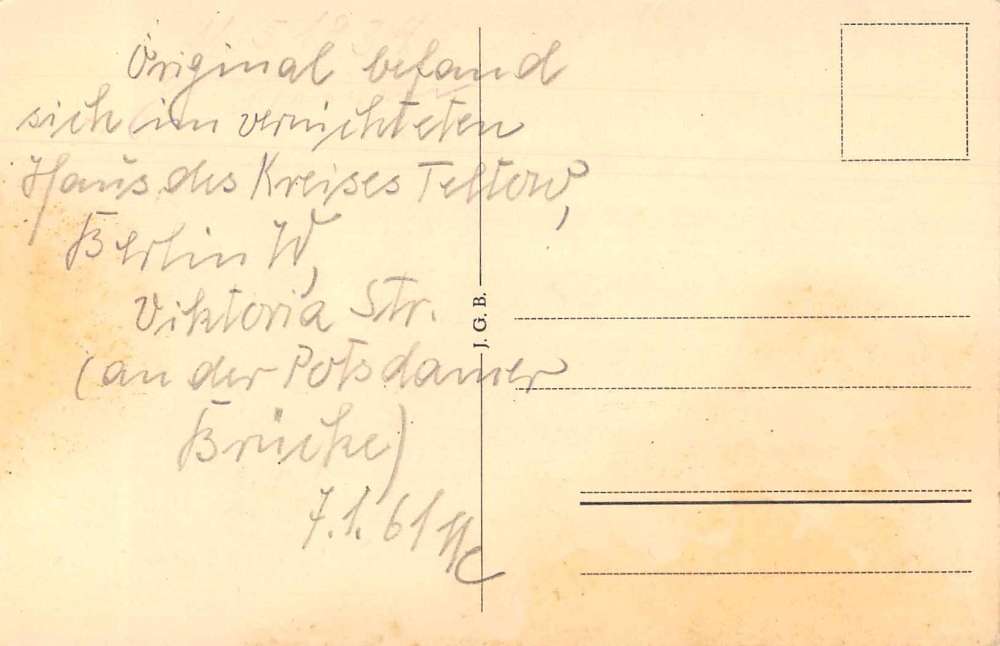 Original befand
sich im vernichteten
Haus des Kreises Teltow,
Berlin W,
Viktoria Str.
(an der Potsdamer
Brücke)
7.1.61
J. G. B.